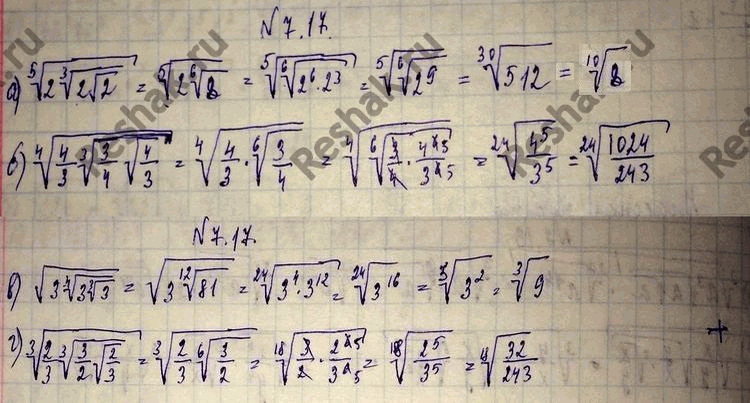 N 7.17.
а) ⁵√(2 ³√(2√2)) = ⁵√(2 ⁶√8) = ⁵√(⁶√(2⁶·2³)) = ⁵√(⁶√(2⁹)) = ³⁰√512 = ¹⁰√8
б) ⁴√(4/3 ³√(3/4 √(4/3))) = ⁴√(4/3 · ⁶√(3/4)) = ⁴√(⁶√(3/4 · 4⁶⁵/3⁶⁵)) = ²⁴√(4⁵/3⁵) = ²⁴√(1024/243)
N 7.17.
в) √(3 ⁴√(3 ³√3)) = √(3 ¹²√81) = ²⁴√(3⁴·3¹²) = ²⁴√(3¹⁶) = ³√(3²) = ³√9
г) ³√(2/3 ³√(3/2 √(2/3))) = ³√(2/3 ⁶√(3/2)) = ¹⁸√(3/2 · 2⁶⁵/3⁶⁵) = ¹⁸√(2⁵/3⁵) = ¹⁸√(32/243)
Reshak.ru
Reshak.ru
Reshak.ru